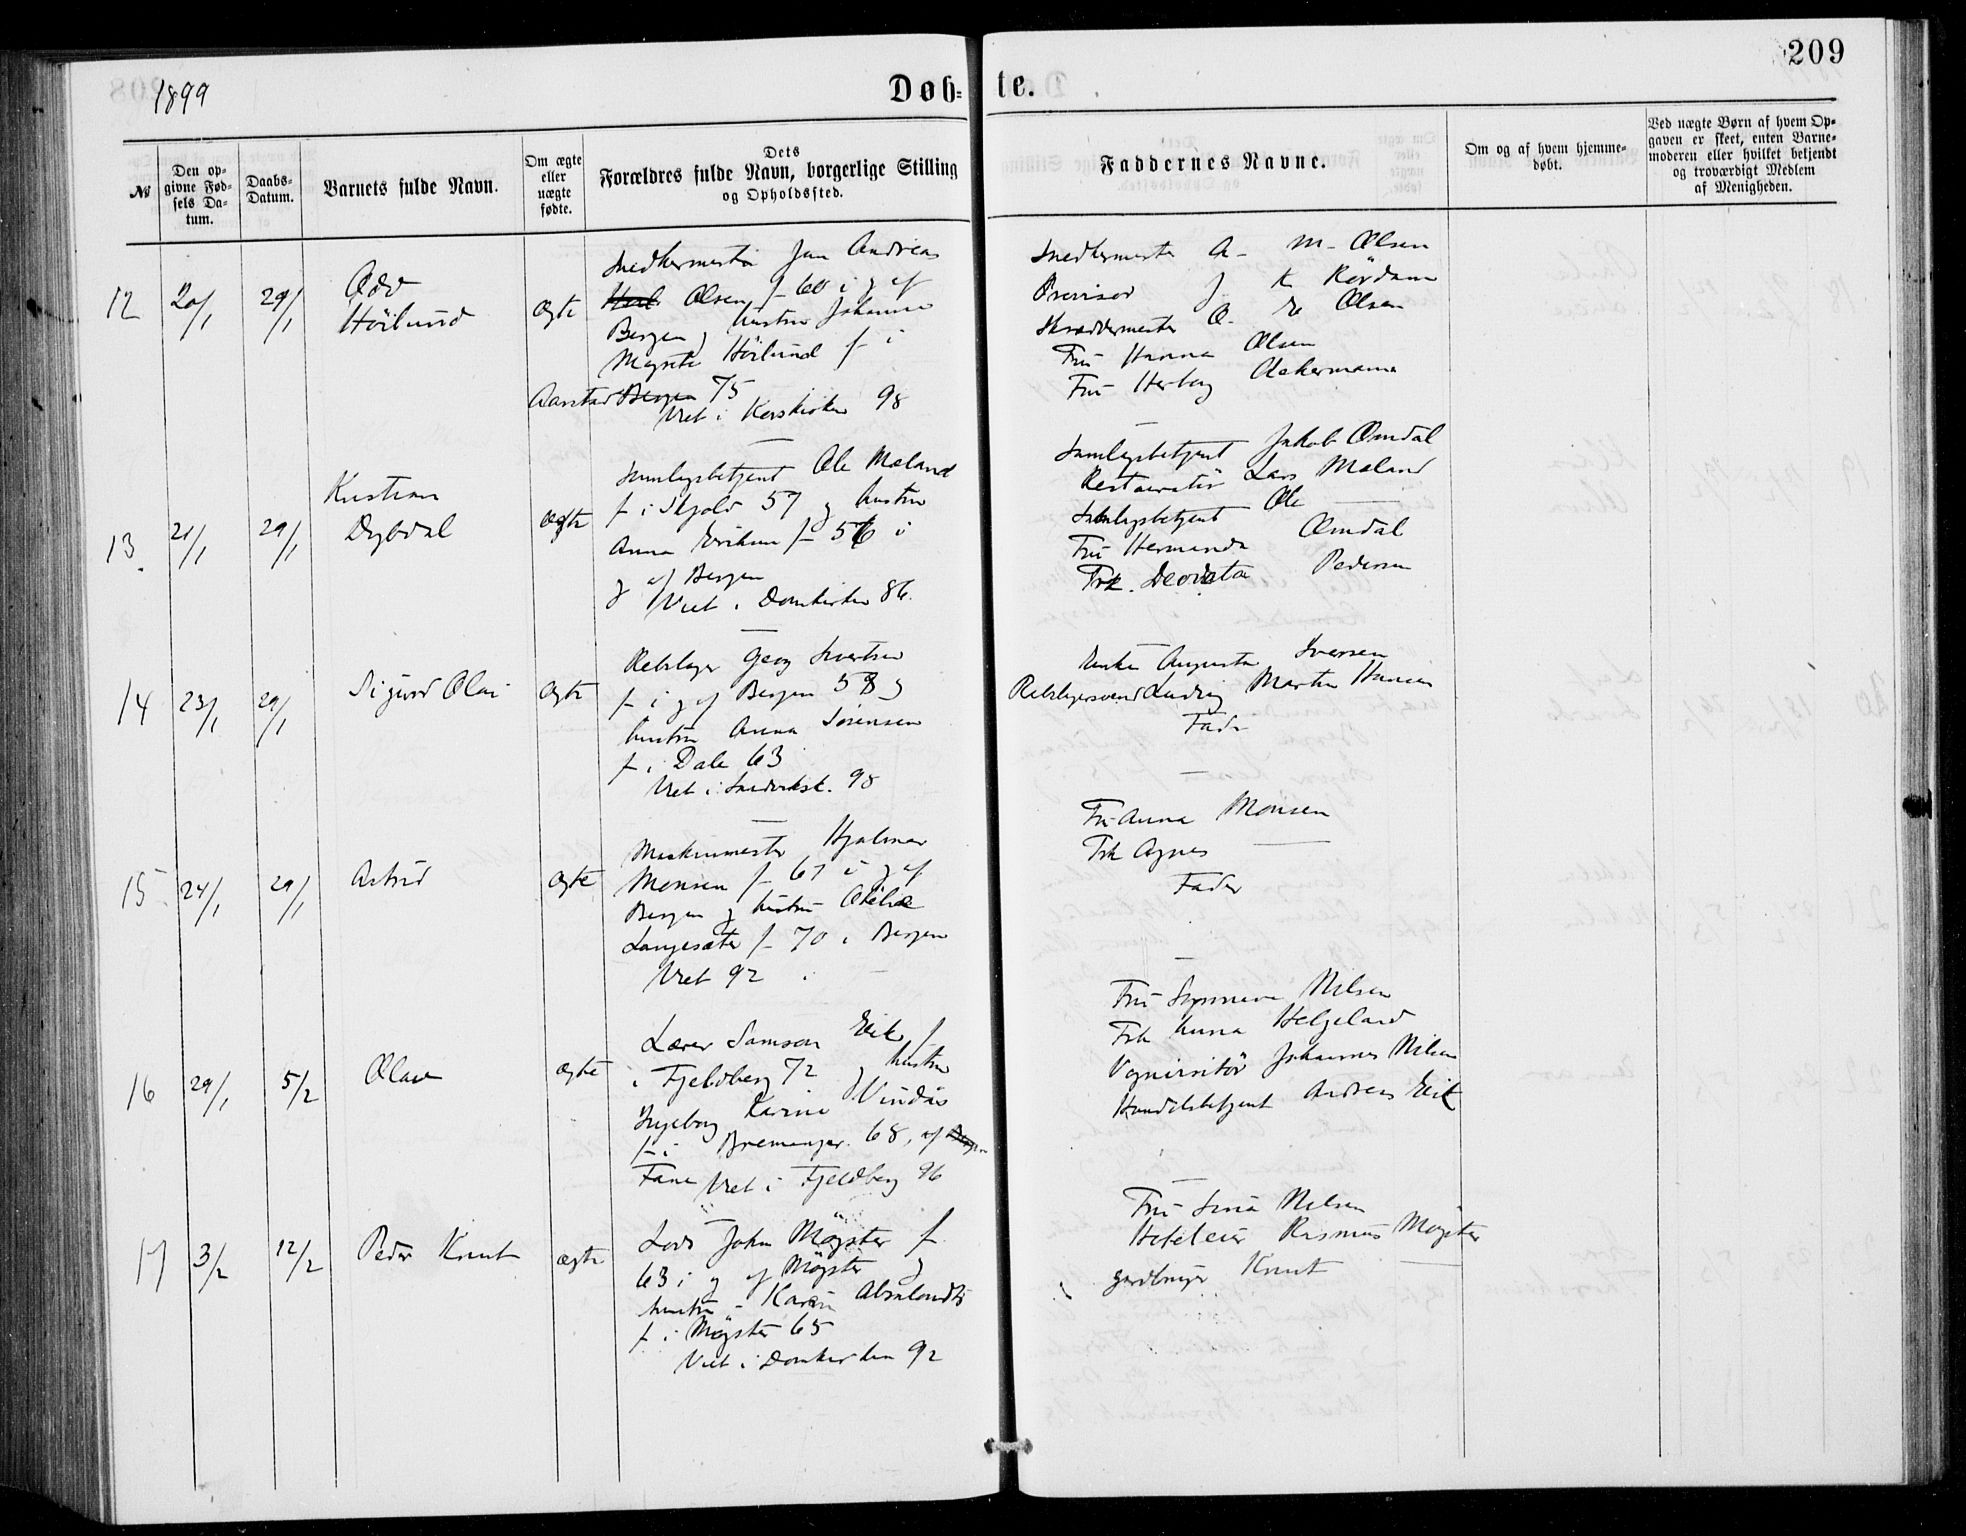 1899
Døb=
te.
209
№
Den op=
givne Fød=
sels Da=
tum.
Daabs=
Datum.
Barnets fulde Navn.
Om ægte
eller
uægte
fødte.
Dets
Forældres fulde Navn, borgerlige Stilling
og Opholdssted.
Faddernes Navne.
Om og af hvem hjemme=
døbt.
Ved uægte Børn af hvem Op=
gaven er skeet, enten Barne=
moderen eller hvilket betjendt
og troværdigt Medlem
af Menigheden.
12
20/1
29/1
Odd
Höilund
ægte
Snedkermester Jan Andreas
Olsen f 60 i g af
Bergen g hustru Johanne
Margrete Höilund f i
Aarstad Bergen 75
Viet i Korskirken 98
Snedkermester A. M. Olsen
Provisor J K Rördam
Skræddermester O. E Olsen
Fru Hanna Olsen
Fru Herborg Ackermann
13
21/1
29/1
Kristian
Dybdal
ægte
Samlagsbetjent Ole Mæland
f i Skjold 57 g hustru
Anna Eriksen f 56 i
g af Bergen
Viet i Domkirken 86.
Samlagsbetjent Jakob Omdal
Restauratör Lars Mæland
Samlagsbetjent Ole —
Fru Hermanda Omdal
Frk. Deodata Pedersen
14
23/1
29/1
Sigurd Olai
ægte
Rebslager Georg Sivertsen
f i g af Bergen 58 g
hustru Anna Sörensen
f i Dale 63
Viet i Sandviksk. 98
Enke Augusta Iversen
Rebslagersvend Ludvig Martin Hansen
Fader
15
24/1
29/1
Astrid
ægte
Maskinmester Hjalmar
Monsen f 67 i g af
Bergen g hustru Otilie
Langesæter f 70 i Bergen
Viet 92
Fru Anna Monsen
Frk Agnes —
Fader
16
29/1
5/2
Olav
ægte
Lærer Samson Eik f
i Fjeldberg 72 g hustru
Ingeborg Karine Vindås
f i Bremanger 68, af Bergen
Fane Viet i Fjeldberg 96
Fru Synneve Nilsen
Frk Anna Helgeland
Vognvisitör Johannes Nilsen
Handelsbetjent Andreas Eik
17
3/2
12/2
Peder Knut
ægte
Lods John Mögster f
63 i g af Mögster g
hustru Karen
f i Mögster 65
Viet i Domkirken 92
Fru Sina Nilsen
Hoteleier Rasmus Mögster
Gardbruger Knut —